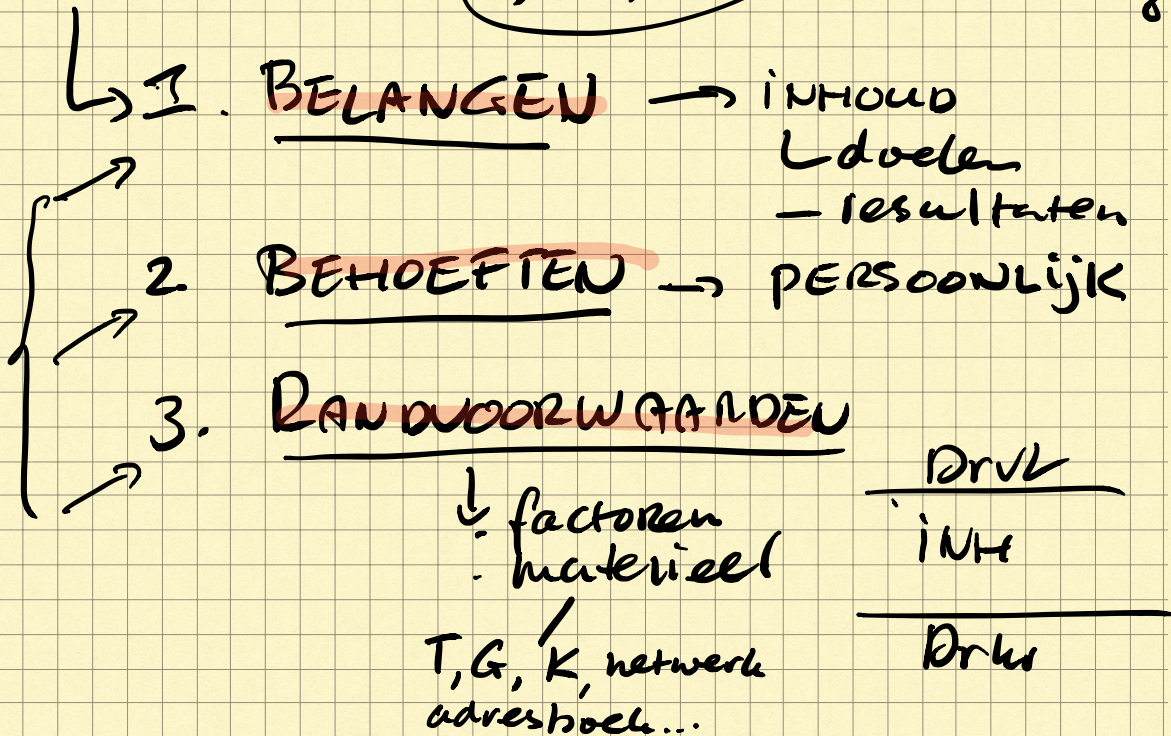 1. BELANGEN → INHOUD
doelen
– resultaten
2. BEHOEFTEN → PERSOONLIJK
3. RANDVOORWAARDEN
↓ factoren
materieel
T, G, K, netwerk
adresboek...
INH